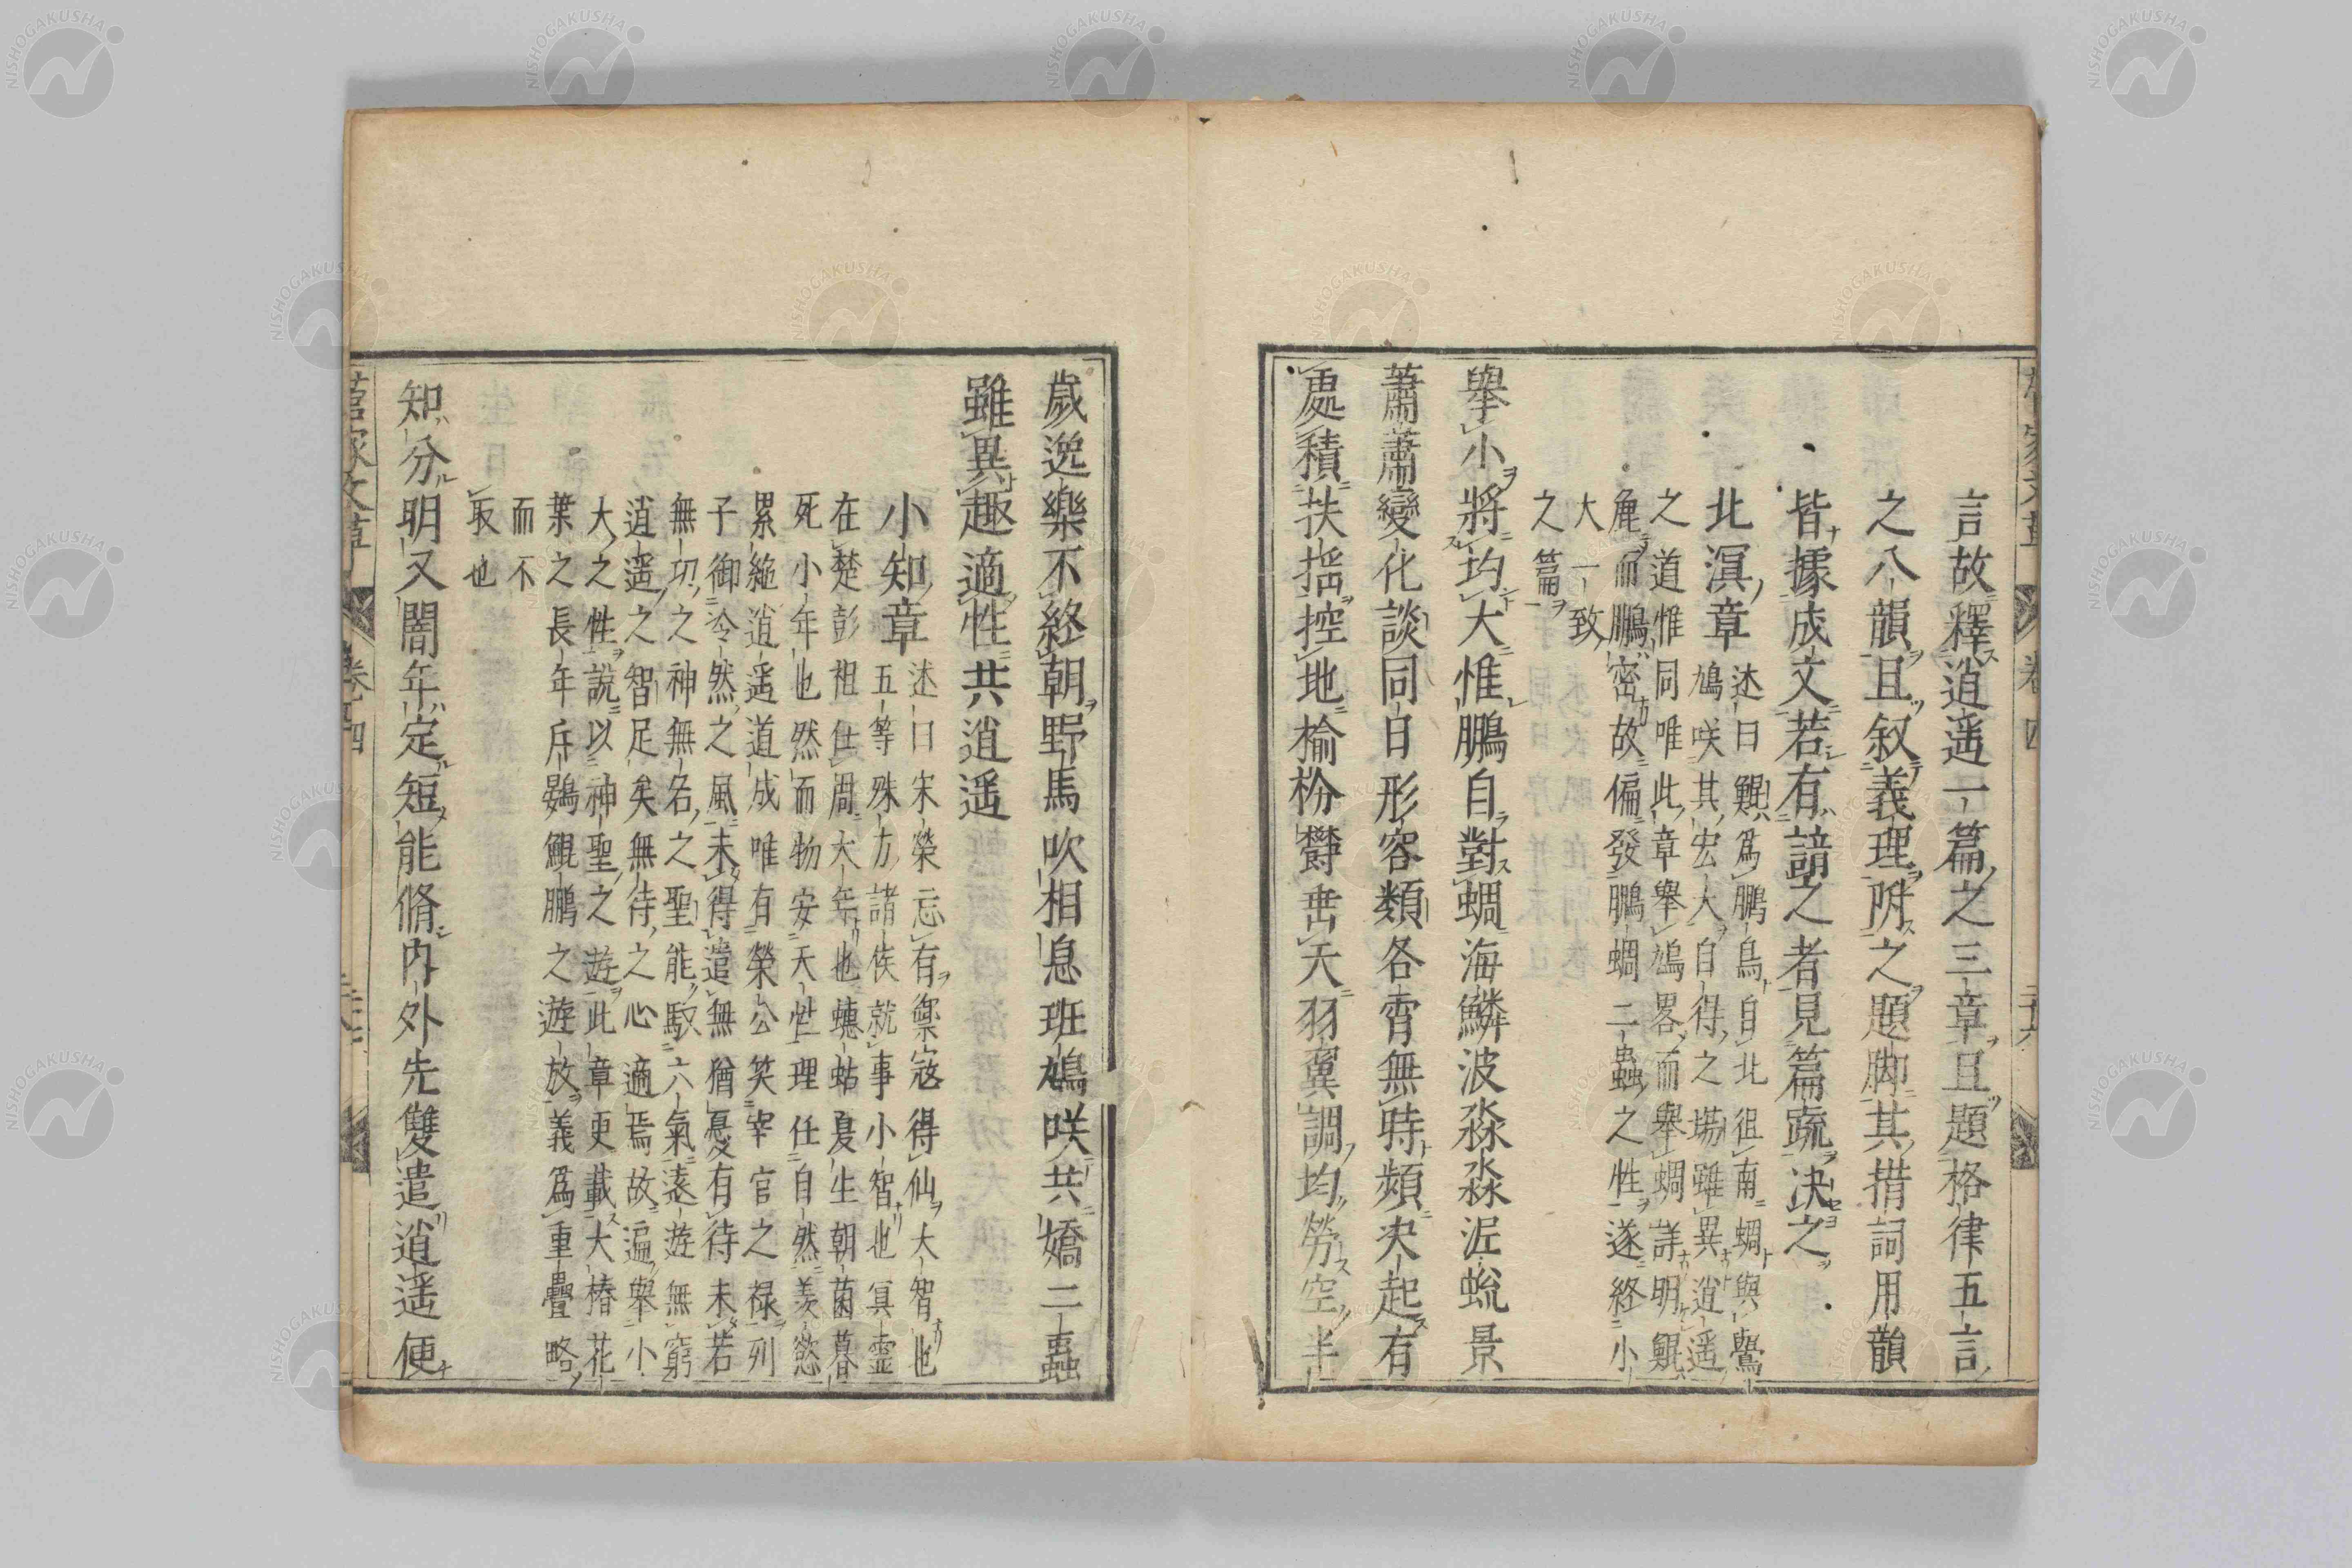 言故釋逍遥一篇之三章且題格律五言
之八韻且叙義理附之題脚其措詞用韻
皆據成文若有諳之者見篇疏決之
北溟章
述曰鯤爲鵬鳥自北徂南蜩與鷽
鳩咲其宏大自得之場雖異逍遥
之道惟同唯此章舉鳩畧而舉蜩詳明鯤
麁而鵬密故偏發鵬蜩二蟲之性遂終小
大一致
之篇
舉小將均大惟鵬自對蜩海鱗波淼淼泥蛻景
蕭蕭變化談同日形容類各霄無時頻決起有
處積扶揺控地楡枌欝垂天羽翼調均勞空半
歲逸樂不終朝野馬吹相息班鳩咲共嬌二蟲
雖異趣適性共逍遥
小知章
述曰宋榮忘有禦寇得仙大智也
五等殊方諸侯就事小智也冥霊
在楚彭祖仕周大年也蟪蛄夏生朝菌暮
死小年也然而物安天性理任自然羨慾
累絶逍遥道成唯有榮公笑宰官之禄列
子御冷然之風未得遣無猶憂有待未若
無功之神無名之聖能馭六氣遠遊無窮
逍遥之智足矣無待之心適焉故遍舉小
大之性説以神聖之遊此章更載大椿花
葉之長年斥鷃鯤鵬之遊放義爲重疊略
而不
取也
知分明又闇年定短能脩内外先雙遣逍遥便
菅家文草
卷四
卷四
NISHOGAKUSHA